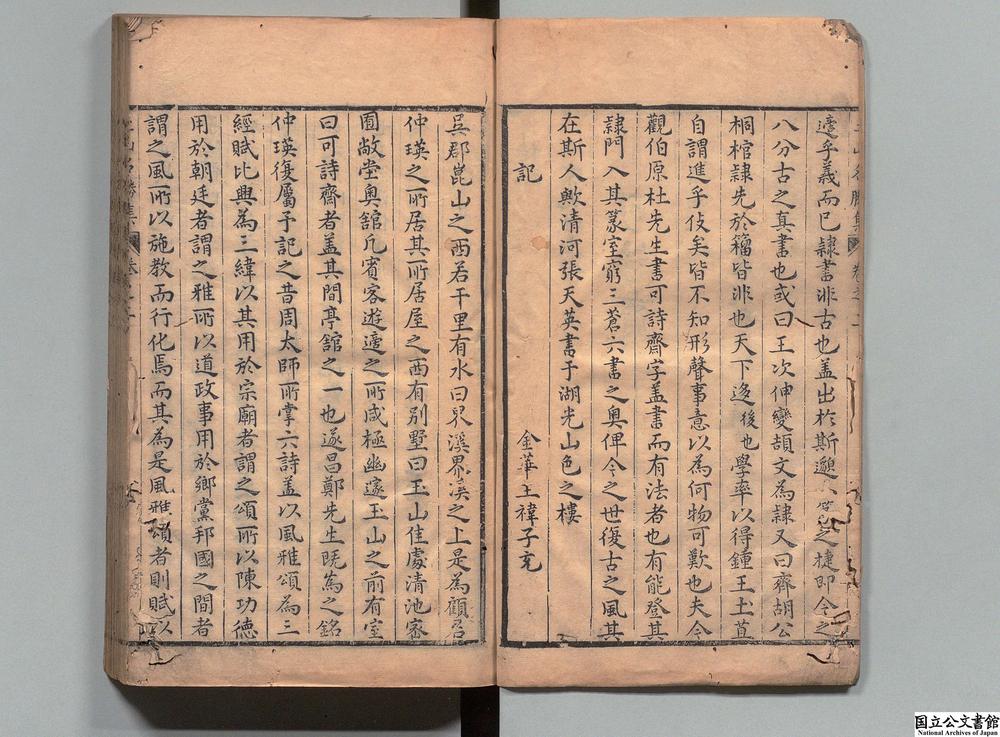 適乎義而已隸書非古也盖出於斯邈之捷即今之
八分古之真書也或曰王次仲變頡文為隸又曰齊胡公
桐棺隸先於籀皆非也天下逡後也學率以得鍾王土苴
自謂進乎伎矣皆不知形聲事意以為何物可歎也夫今
觀伯原杜先生書可詩齋字盖書而有法者也有能登其
隸門入其篆室窮三蒼六書之奥俾今之世復古之風其
在斯人歟清河張天英書于湖光山色之樓
記
金華王禕子充
吳郡崑山之西若干里有水曰界溪界溪之上是為顧君
仲瑛之所居其所居屋之西有别墅曰玉山佳處清池密
囿敞堂奥舘凡賓客遊適之所咸極幽邃玉山之前有室
曰可詩齋者盖其間亭舘之一也遂昌鄭先生既為之銘
仲瑛復屬予記之昔周太師所掌六詩盖以風雅頌為三
經賦比興為三緯以其用於宗廟者謂之頌所以陳功德
用於朝廷者謂之雅所以道政事用於鄉黨邦國之間者
謂之風所以施教而行化焉而其為是風雅頌者則賦以
国立公文書館
National Archives of Japan